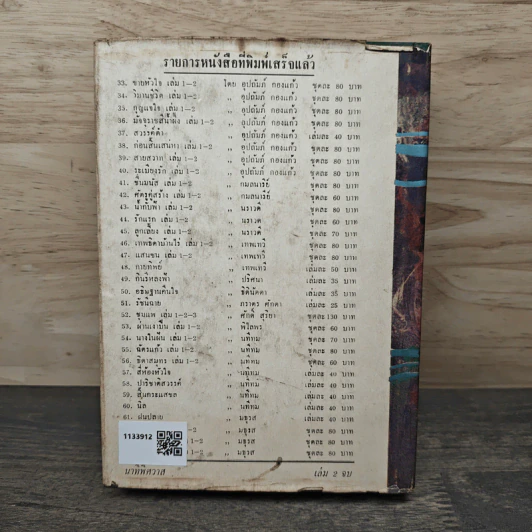 รายการหนังสือที่พิมพ์เสร็จแล้ว
33. ขายหัวใจ เล่ม 1-2 โดย อุปถัมภ์ กองแก้ว ชุดละ 80 บาท
34. วิมานชีวิต เล่ม 1-2 ,, อุปถัมภ์ กองแก้ว ชุดละ 80 บาท
35. กุญแจใจ เล่ม 1-2 ,, อุปถัมภ์ กองแก้ว ชุดละ 80 บาท
36. มัจจุราชสีน้ำผึ้ง เล่ม 1-2 ,, อุปถัมภ์ กองแก้ว ชุดละ 80 บาท
37. สวรรค์ดำ ,, อุปถัมภ์ กองแก้ว เล่มละ 40 บาท
38. ก่อนสิ้นเสน่หา เล่ม 1-2 ,, อุปถัมภ์ กองแก้ว ชุดละ 80 บาท
39. สายสวาท เล่ม 1-2 ,, อุปถัมภ์ กองแก้ว ชุดละ 80 บาท
40. ระเมียงรัก เล่ม 1-2 ,, อุปถัมภ์ กองแก้ว ชุดละ 80 บาท
41. ขึ้นมนัส เล่ม 1-2 ,, กมลนารีย์ ชุดละ 80 บาท
42. ศัตรูคู่สร้าง เล่ม 1-2 ,, กมลนารีย์ ชุดละ 60 บาท
43. น้ำที่บ่าฟ้า เล่ม 1-2 ,, นราวดี ชุดละ 80 บาท
44. รักแรก เล่ม 1-2 ,, นราวดี ชุดละ 60 บาท
45. ลูกเลี้ยง เล่ม 1-2 ,, นราวดี ชุดละ 70 บาท
46. เทพธิดาบ้านไร่ เล่ม 1-2 ,, เทพเทวี ชุดละ 80 บาท
47. แสนซน เล่ม 1-2 ,, เทพเทวี ชุดละ 80 บาท
48. กายทิพย์ ,, เทพเทวี เล่มละ 50 บาท
49. กินริหลงฟ้า ,, ปริศนา เล่มละ 35 บาท
50. อธิษฐานคืนใจ ,, ธิตินัดดา เล่มละ 35 บาท
51. รัชนีฉาย ,, ภราดร ศักดา เล่มละ 25 บาท
52. ขุนแพ เล่ม 1-2-3 ,, ศักดิ์ สุริยา ชุดละ 130 บาท
53. ม่านเงาฝัน เล่ม 1-2 ,, พิไลพร ชุดละ 60 บาท
54. นางในฝัน เล่ม 1-2 ,, นทีทม ชุดละ 70 บาท
55. ฉัตรแก้ว เล่ม 1-2 ,, นทีทม ชุดละ 80 บาท
56. ธิดาสมุทร เล่ม 1-2 ,, นทีทม ชุดละ 60 บาท
57. สี่ห้องหัวใจ ,, นทีทม เล่มละ 40 บาท
58. ปาริชาติสวรรค์ ,, นทีทม เล่มละ 40 บาท
59. ,, นทีทม เล่มละ 40 บาท
60. นิล ,, นทีทม เล่มละ 40 บาท
61. ฝนปลาย ,, มธุรส ชุดละ 80 บาท
-2 ,, มธุรส ชุดละ 80 บาท
1-2 ,, มธุรส ชุดละ 80 บาท
1-2 ,, มธุรส ชุดละ 60 บาท
1133912
นาทีพิศวาส เล่ม 2 จบ